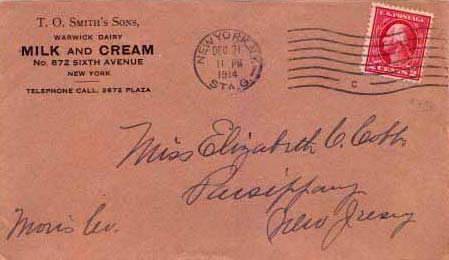 T. O. SMITH'S SONS,
WARWICK DAIRY
MILK AND CREAM
No. 872 SIXTH AVENUE
NEW YORK
TELEPHONE CALL, 2672 PLAZA
NEW YORK, N.Y.
DEC 21
11 PM
1914
STA. G.
C
U.S. POSTAGE
2 CENTS 2
Miss Elizabeth C. Cobb
Parsippany
New Jersey
Morris Co.